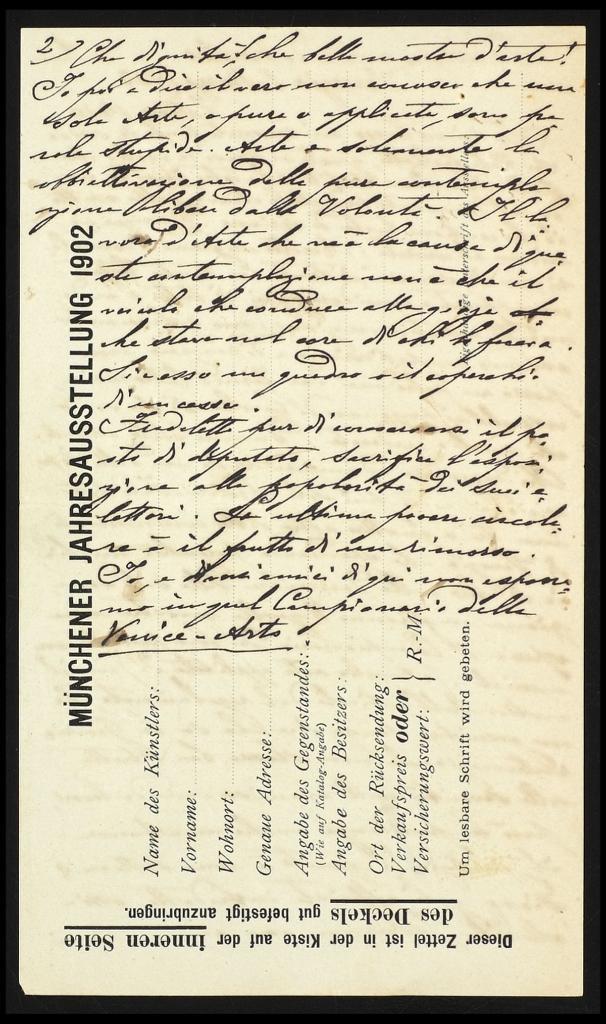 2) Che dignità! che bella mostra d'arte!
Io poi a dire il vero non conosco che una
sola Arte, o pura o applicata, sono pa
role stupide. Arte è solamente la
obbiettivazione della pura contempla
zione libera dalla Volontà. Il la
voro d'Arte che non è la causa di que
sta contemplazione non è che il
veicolo che conduce alla gioia
che stava nel core di chi lo faceva.
Sia esso un quadro o il coperchio
di un cesso.
Fradeletto pur di conservarsi il po
sto di deputato, sacrifica l'esposi
zione alla popolarità dei suoi e
lettori. La ultima povera circola=
re è il frutto di un rimorso.
Io, e diversi amici di qui non esponia=
mo in quel Campionario della
Venice-Arts
MÜNCHENER JAHRESAUSSTELLUNG 1902
Name des Künstlers:
Vorname:
Wohnort:
Genaue Adresse:
Angabe des Gegenstandes:
(Wie auf Katalog-Angabe)
Angabe des Besitzers:
Ort der Rücksendung:
Verkaufspreis oder
Versicherungswert: } R.-M.
Um lesbare Schrift wird gebeten.
Dieser Zettel ist in der Kiste auf der inneren Seite
des Deckels gut befestigt anzubringen.